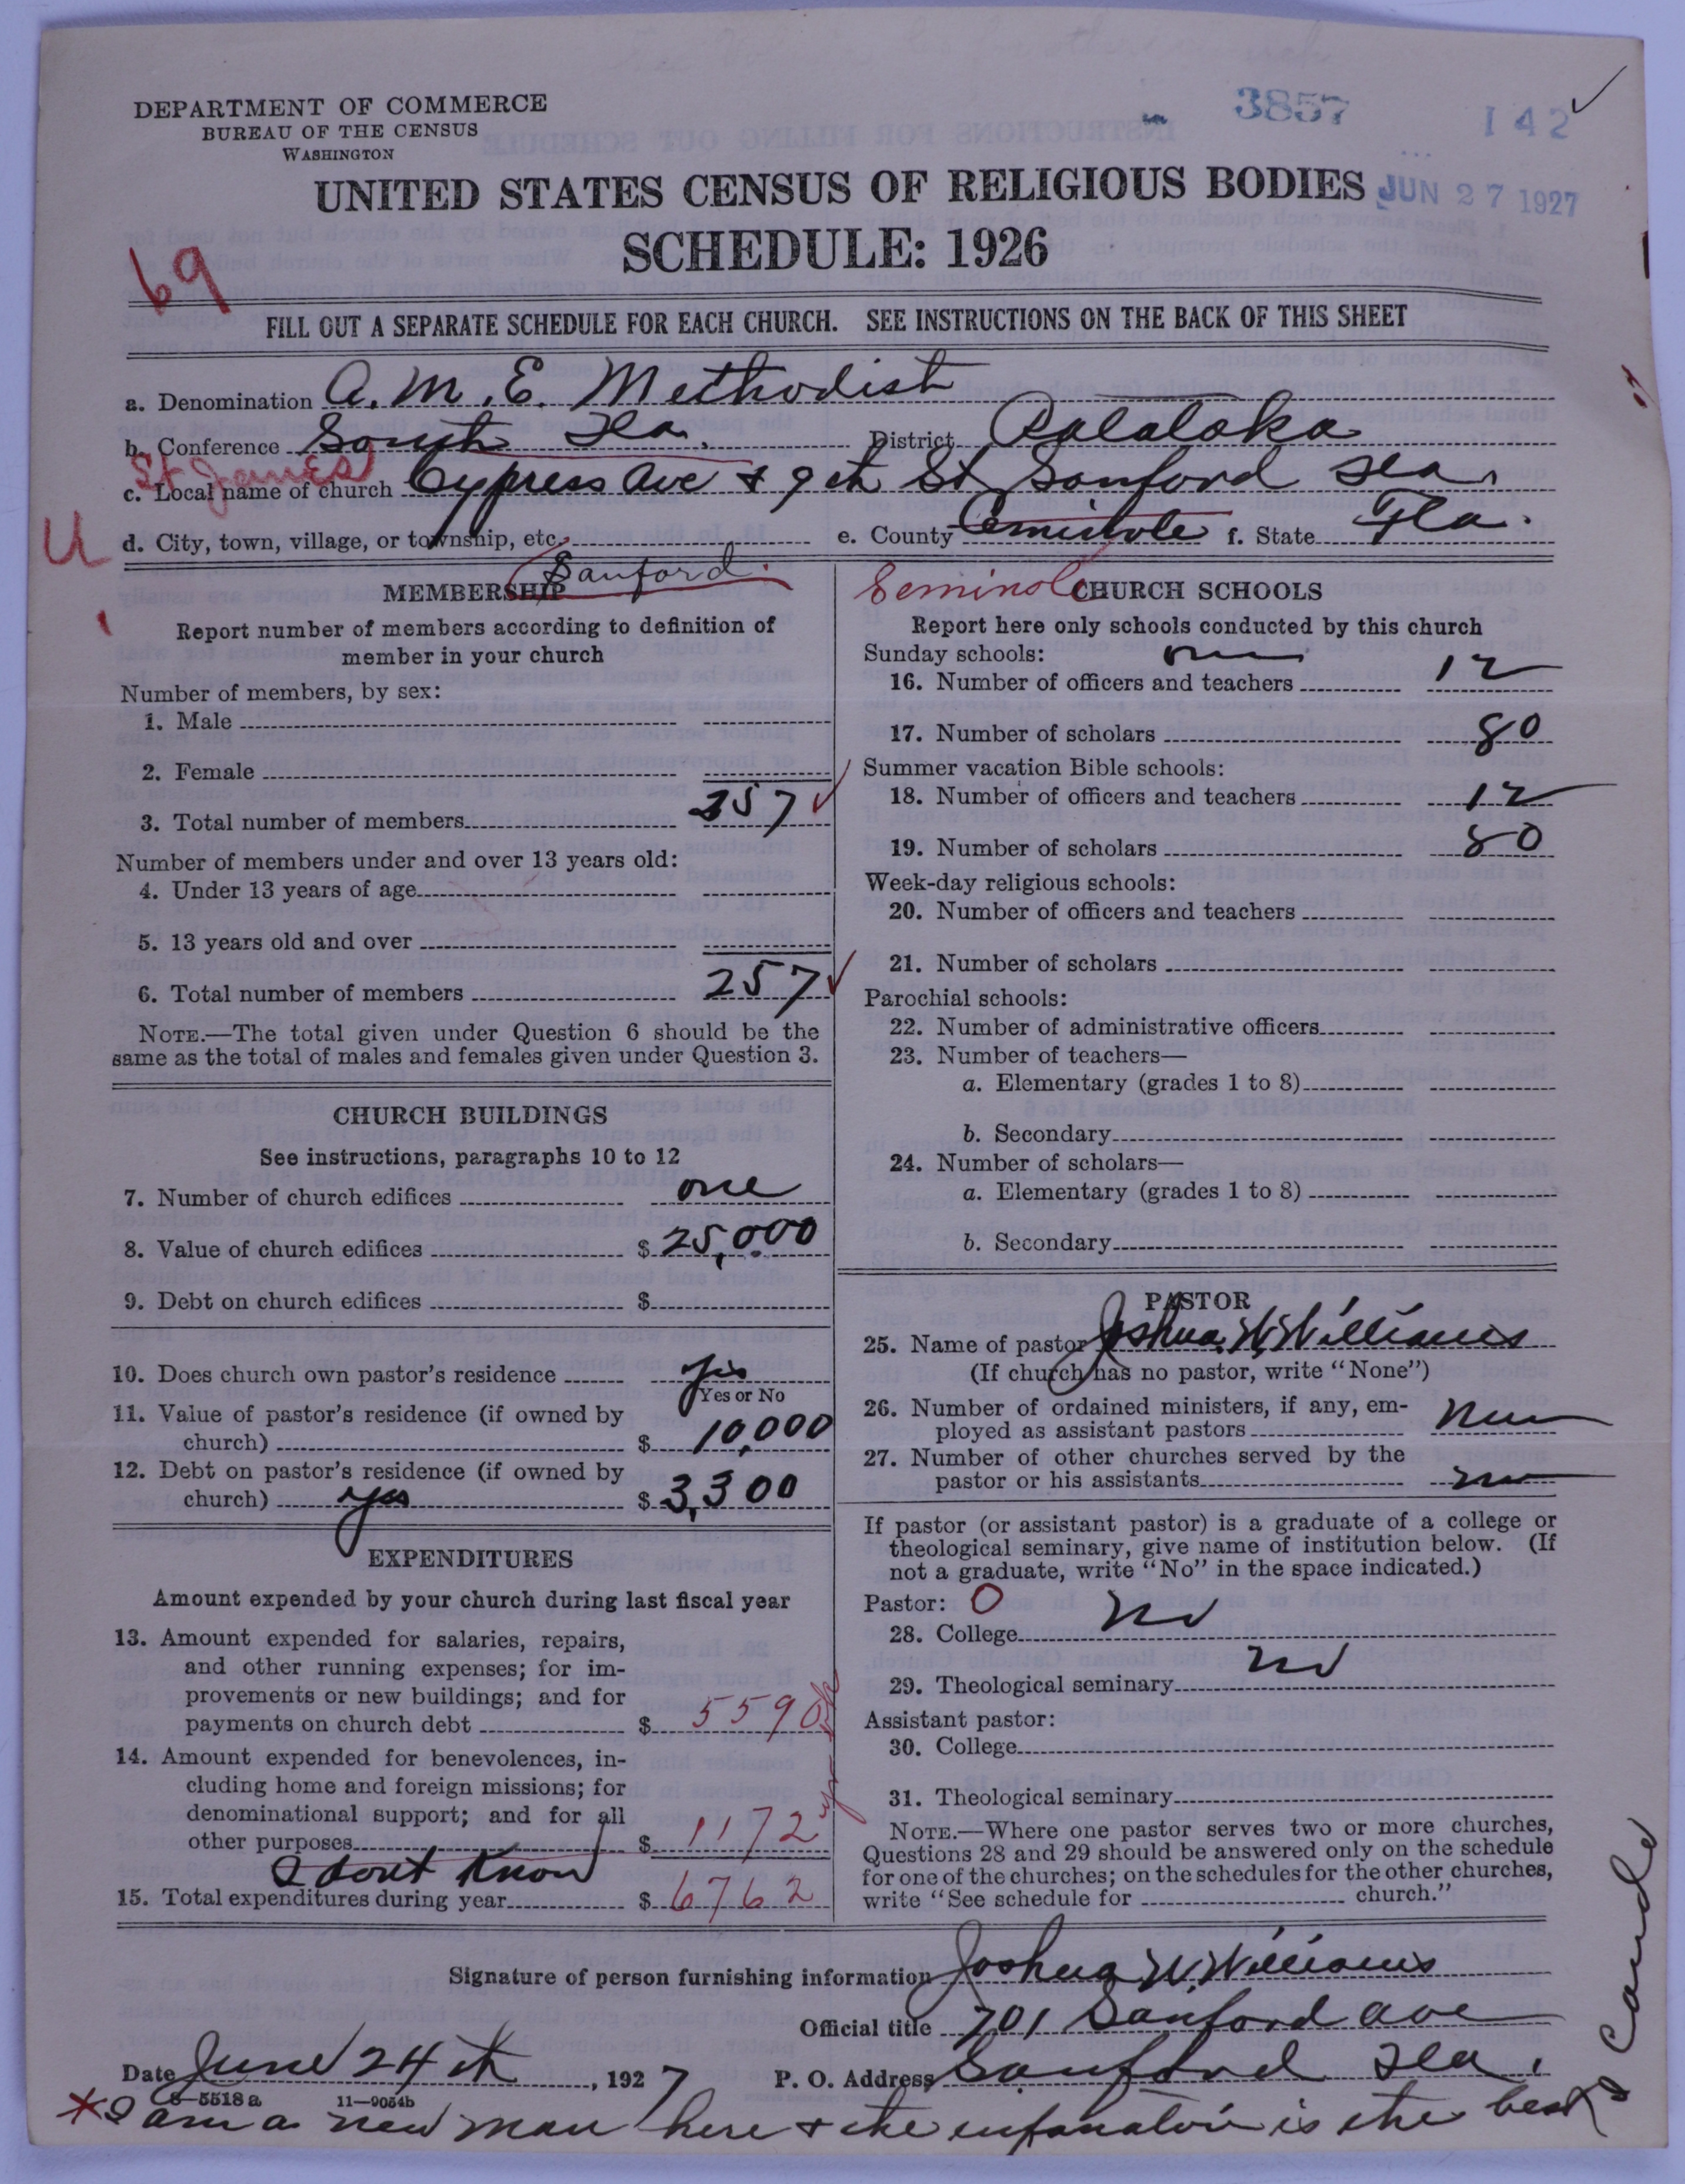 3857
142
DEPARTMENT OF COMMERCE
BUREAU OF THE CENSUS
WASHINGTON
UNITED STATES CENSUS OF RELIGIOUS BODIES
JUN 27 1927
SCHEDULE: 1926
69
FILL OUT A SEPARATE SCHEDULE FOR EACH CHURCH. SEE INSTRUCTIONS ON THE BACK OF THIS SHEET
a. Denomination A.M.E. Methodist
b. Conference South Fla. District Palataka
St James
c. Local name of church Cypress Ave & 9th St Sanford Fla.
U
d. City, town, village, or township, etc. e. County Ceminole f. State Fla.
Sanford.
Seminole
MEMBERSHIP
Report number of members according to definition of
member in your church
Number of members, by sex:
1. Male
2. Female
3. Total number of members 257
Number of members under and over 13 years old:
4. Under 13 years of age
5. 13 years old and over
6. Total number of members 257
NOTE.—The total given under Question 6 should be the
same as the total of males and females given under Question 3.
CHURCH BUILDINGS
See instructions, paragraphs 10 to 12
7. Number of church edifices one
8. Value of church edifices $ 25,000
9. Debt on church edifices $
10. Does church own pastor's residence yes
Yes or No
11. Value of pastor's residence (if owned by
church) $ 10,000
12. Debt on pastor's residence (if owned by
church) yes $ 3,300
EXPENDITURES
Amount expended by your church during last fiscal year
13. Amount expended for salaries, repairs,
and other running expenses; for im-
provements or new buildings; and for
payments on church debt $ 5590
14. Amount expended for benevolences, in-
cluding home and foreign missions; for
denominational support; and for all
other purposes $ 1172
I dont Know
15. Total expenditures during year $ 6762
CHURCH SCHOOLS
Report here only schools conducted by this church
Sunday schools:
16. Number of officers and teachers 12
17. Number of scholars 80
Summer vacation Bible schools:
18. Number of officers and teachers 12
19. Number of scholars 80
Week-day religious schools:
20. Number of officers and teachers
21. Number of scholars
Parochial schools:
22. Number of administrative officers
23. Number of teachers—
a. Elementary (grades 1 to 8)
b. Secondary
24. Number of scholars—
a. Elementary (grades 1 to 8)
b. Secondary
PASTOR
25. Name of pastor Joshua W. Williams
(If church has no pastor, write "None")
26. Number of ordained ministers, if any, em-
ployed as assistant pastors
27. Number of other churches served by the
pastor or his assistants no
If pastor (or assistant pastor) is a graduate of a college or
theological seminary, give name of institution below. (If
not a graduate, write "No" in the space indicated.)
Pastor: O
28. College no
29. Theological seminary no
Assistant pastor:
30. College
31. Theological seminary
NOTE.—Where one pastor serves two or more churches,
Questions 28 and 29 should be answered only on the schedule
for one of the churches; on the schedules for the other churches,
write "See schedule for church."
Signature of person furnishing information Joshua W Williams
Official title 701 Sanford ave
Date June 24th, 1927 P. O. Address Sanford Fla.
8-5518a 11-9054b
* I am a new man here & the enfamation is the best
I Can do